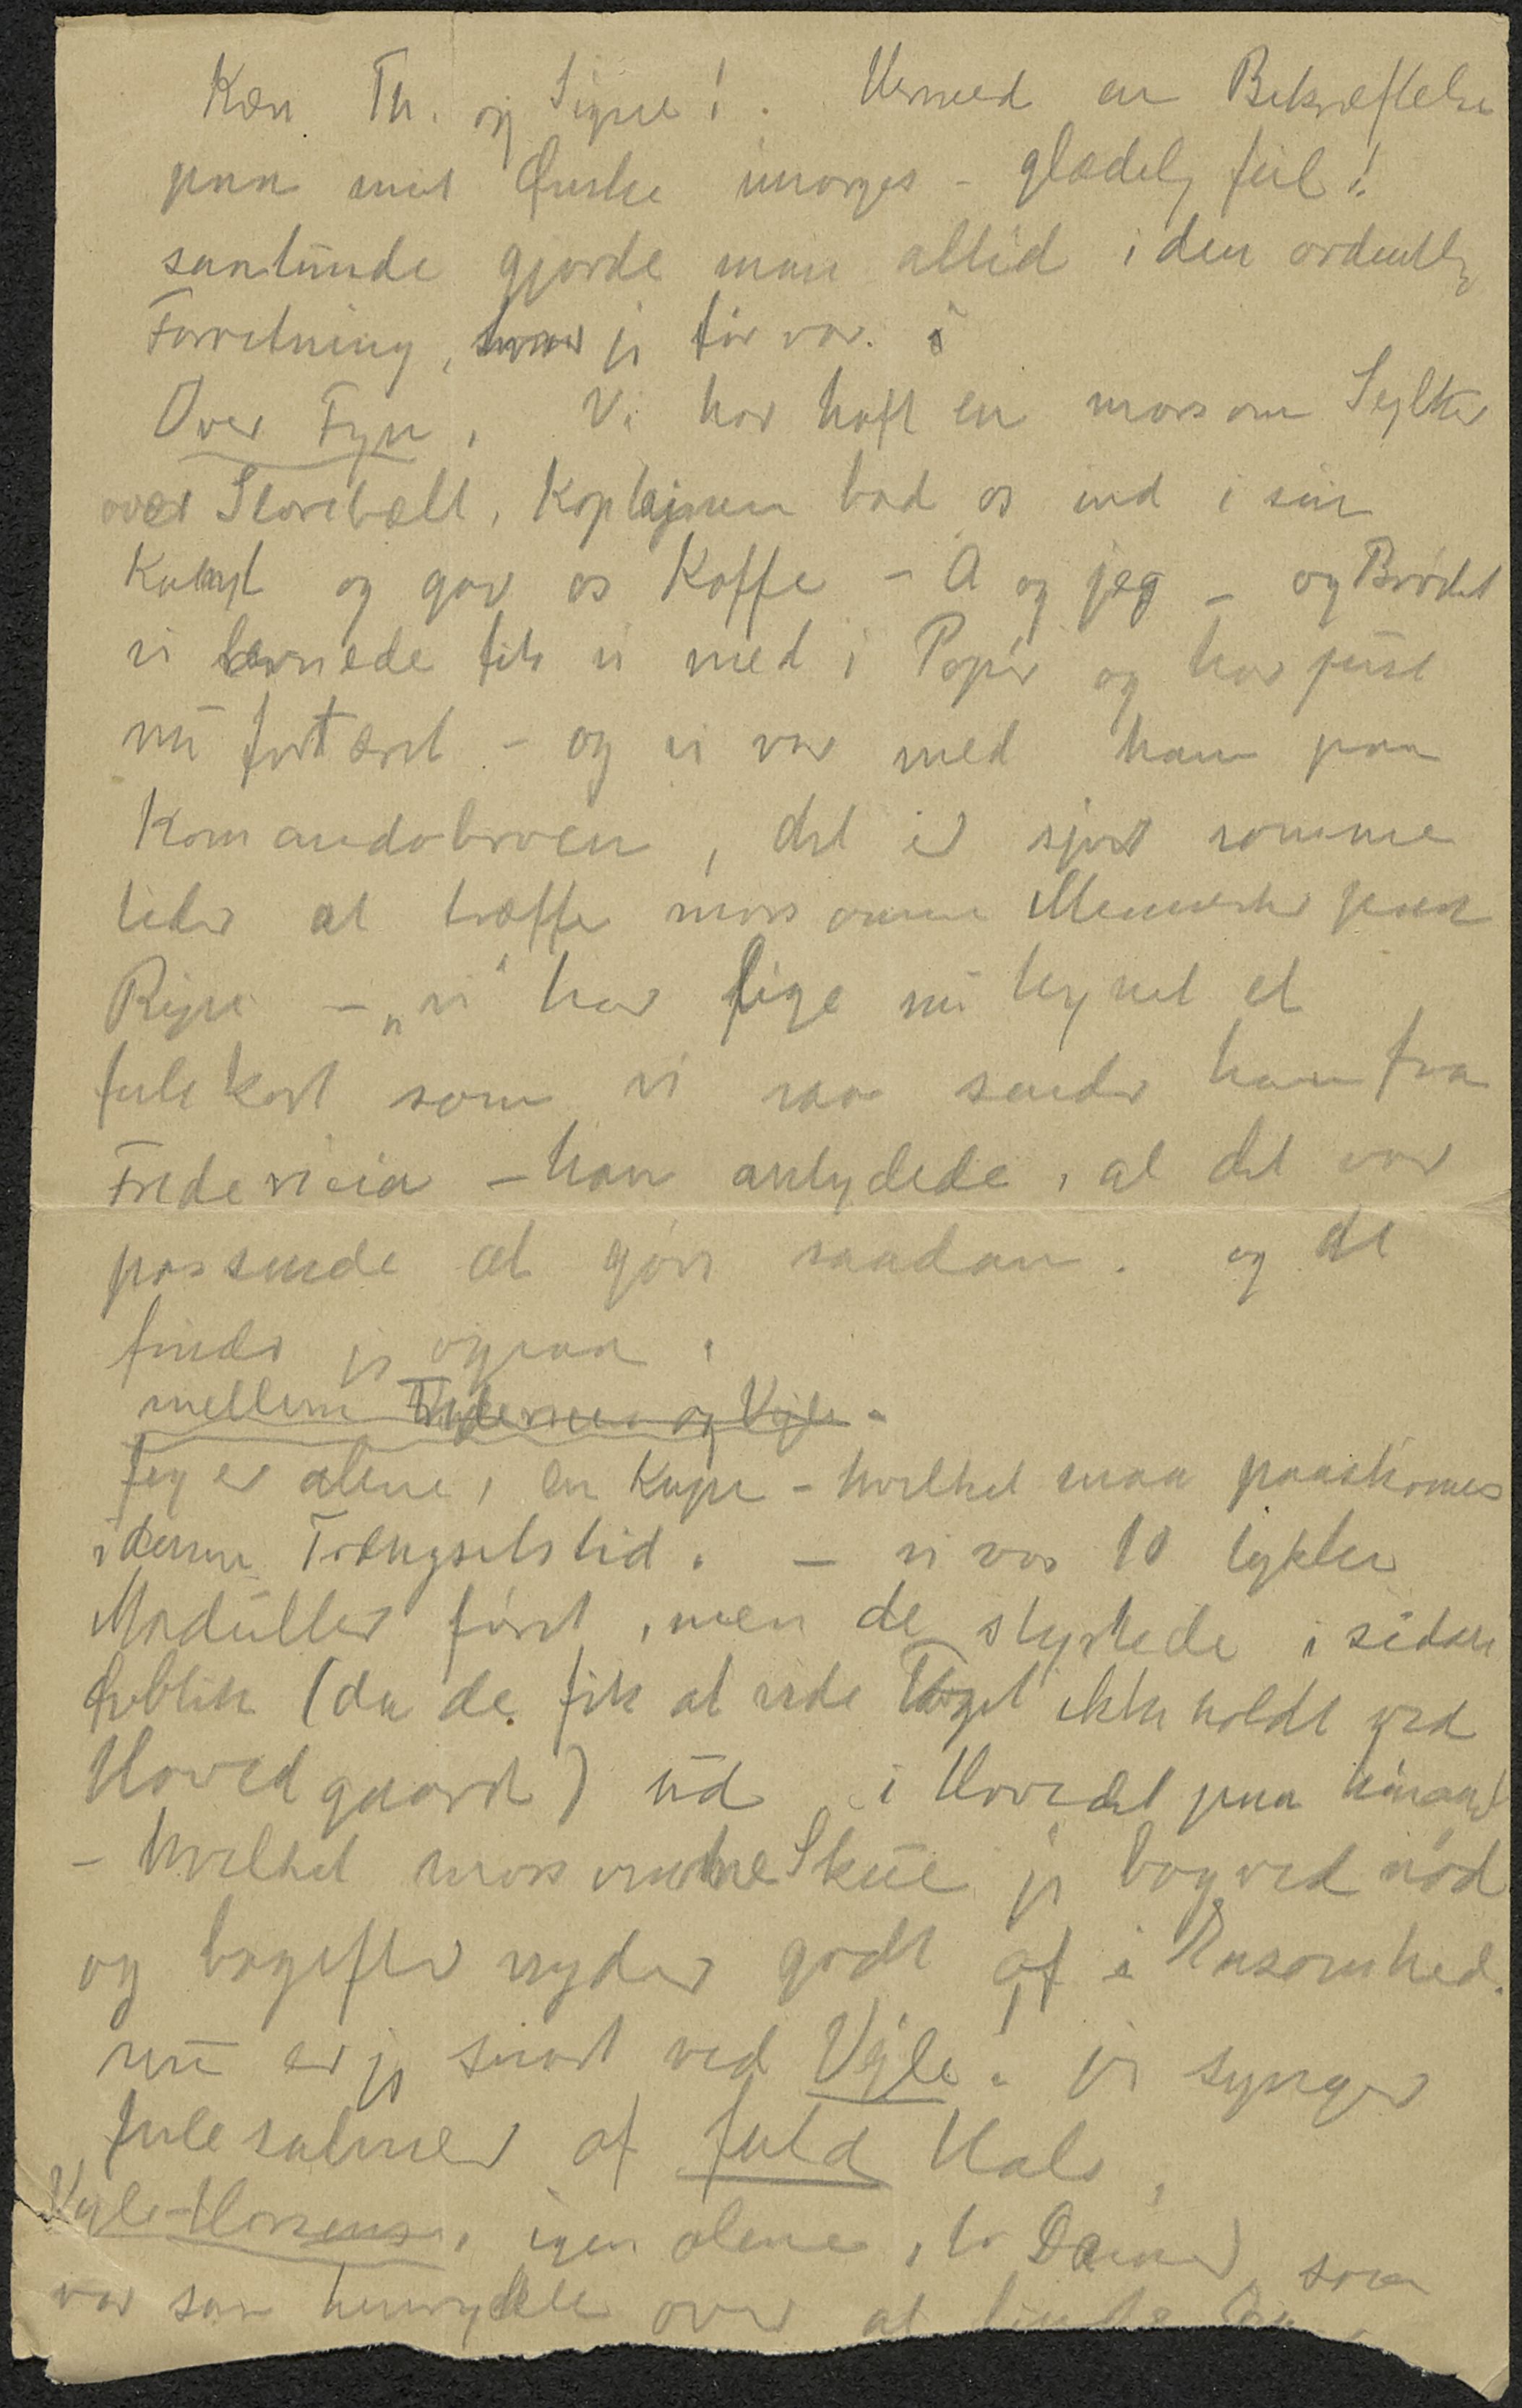 Kære Th. og Signe! Hermed en Bekræftelse
paa mit Ønske imorges - glædelig Jul!
saaledes gjorde man altid i den ordentlig
Forretning, hvor jg før var i
Over Fyn. Vi har haft en morsom Sejltur
over Storebælt, Kaptajnen bad os ind i sin
Kahyt og gav os Kaffe - A og jeg - og Brødet
vi levnede fik vi med i Papir og har just
nu fortæret - og vi var med ham paa
Komandobroen, det er sjovt somme
tider at træffe morsomme Mennesker paa
Rejse - "vi" har lige nu tegnet et
Julekort som vi saa sender ham fra
Fredericia - han antydede, at det var
passende at gøre saadan. og det
finder jg ogsaa.
mellem Fredericia og Vejle.
Jeg er alene i en Kupe - hvilket maa paaskønnes
i denne Trængselstid. - vi var 10 tykke
Madüller først, men de styrtede i sidste
Øieblik (da de fik at vide Toget ikke holdt ved
Hovedgaard) ud i Hovedet paa hinand
- hvilket morsomme Skue jg bagved nød
og bagefter nyder godt af i Ensomhed.
nu er jg snart ved Vejle. jg synger
Julesalmer af fuld Hals,
Vejle-Horsens, igen alene, to Damer, som
var saa henrykte over at finde